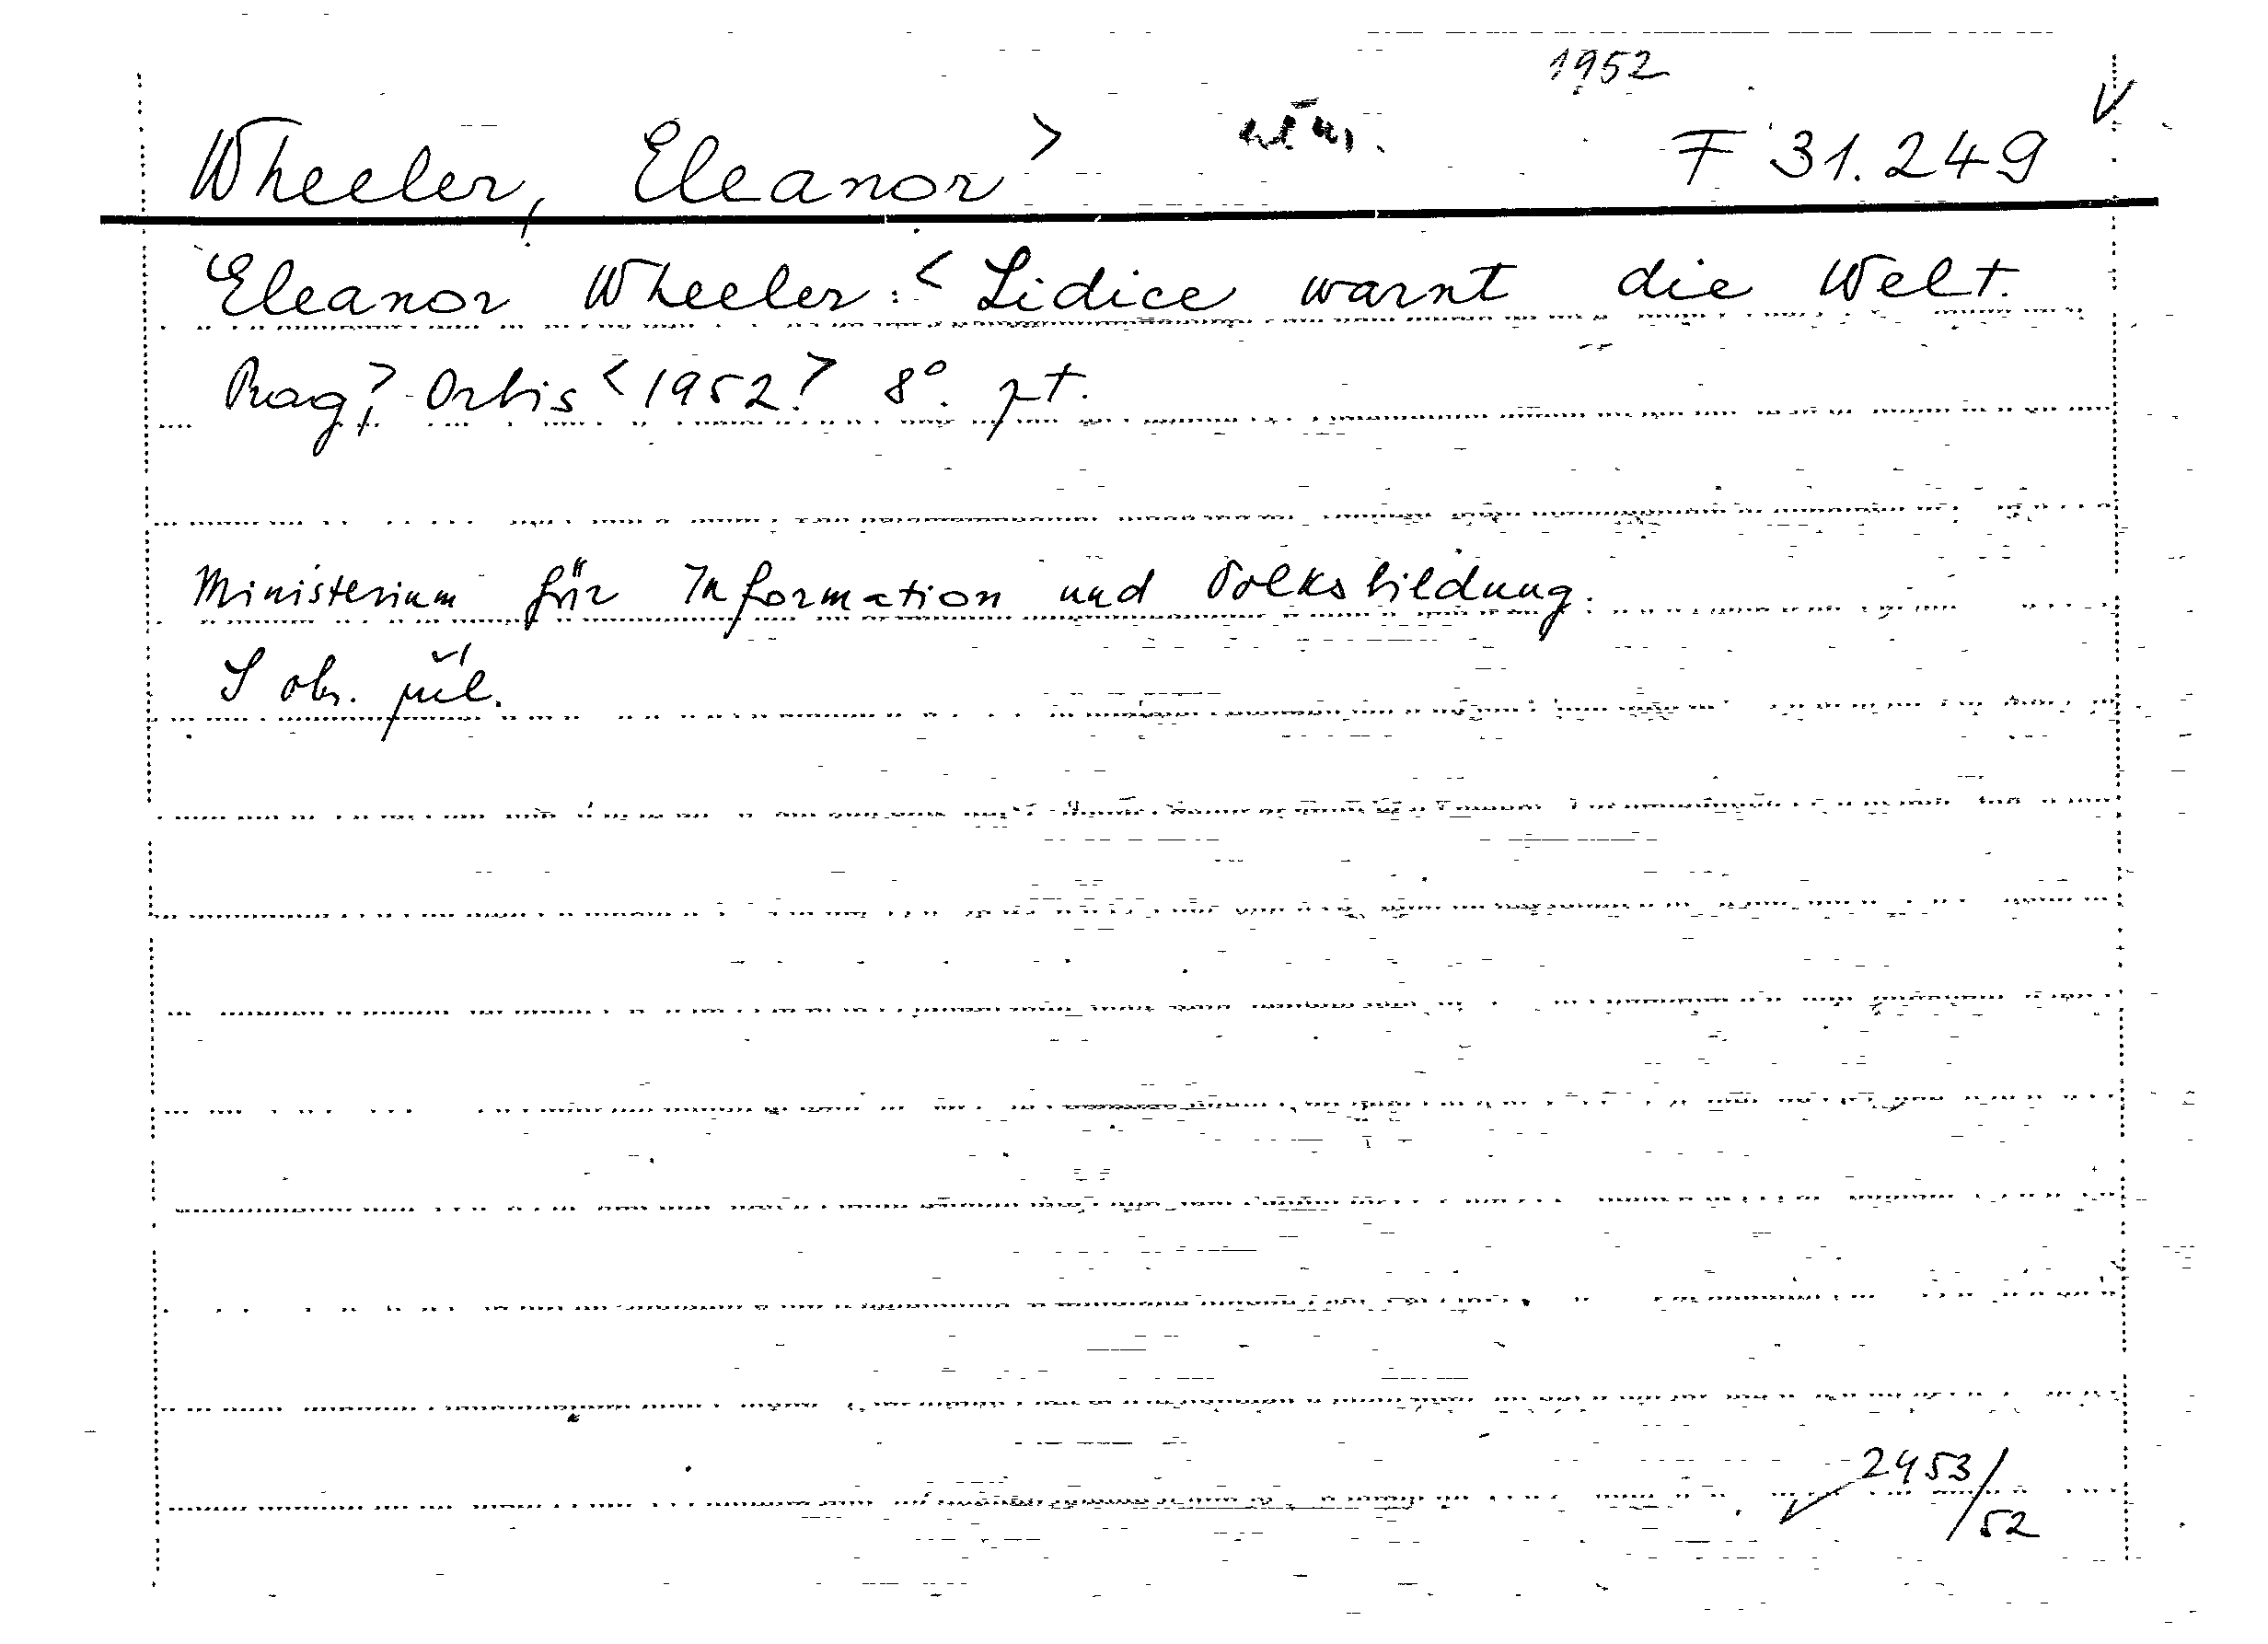 1952
Wheeler, Eleanor> něm. F 31.249
Eleanor Wheeler: < Lidice warnt die Welt.
Prag, > Orbis < 1952. > 8°. pt.
Ministerium für Information und Volksbildung.
S obr. příl.
2453/52